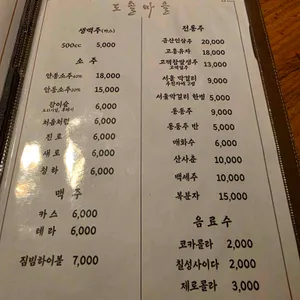 도솔마을
생맥주(맥스)
500cc 5,000
소 주
안동소주40% 18,000
안동소주20% 15,000
참이슬 6,000
처음처럼 6,000
진 로 6,000
새 로 6,000
청 하 6,000
맥 주
카 스 6,000
테 라 6,000
짐빔하이볼 7,000
전통주
금산인삼주 20,000
고흥유자 18,000
고택찹쌀생주 13,000
서울 막걸리 9,000
서울막걸리 한병 5,000
동동주 9,000
동동주 반 5,000
매화수 6,000
산사춘 10,000
백세주 10,000
복분자 15,000
음료수
코카콜라 2,000
칠성사이다 2,000
제로콜라 3,000